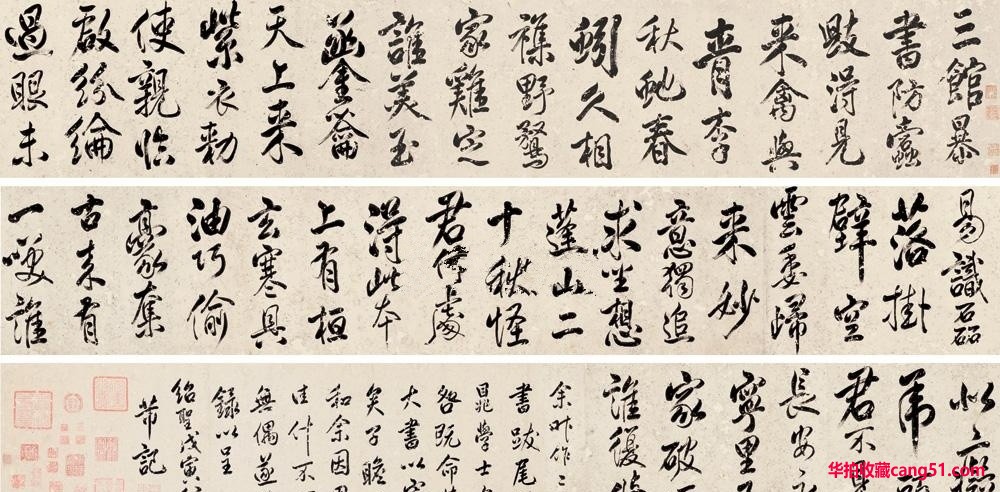 三館暴
書防蠹
毀得見
来禽與
青李
秋虵春
蚓久相
襍野鶩
家雞定
誰美玉
函金籥
天上来
紫衣勅
使親臨
啟紛綸
過眼未
易識磊
落掛
壁空
雲委歸
来妙
意獨追
求坐想
蓬山二
十秋怪
君何處
得此本
上有桓
玄寒具
油巧偷
豪奪
古来有
一咲誰
似癡
虎
君不
長安
寧里
家破
誰復
余昨作二
書跋尾
晁學士
既命
大書以
矣子瞻
和余因
佳什不
無偶遂
錄以呈
紹聖戊寅
芾記
华拍收藏cang51.com